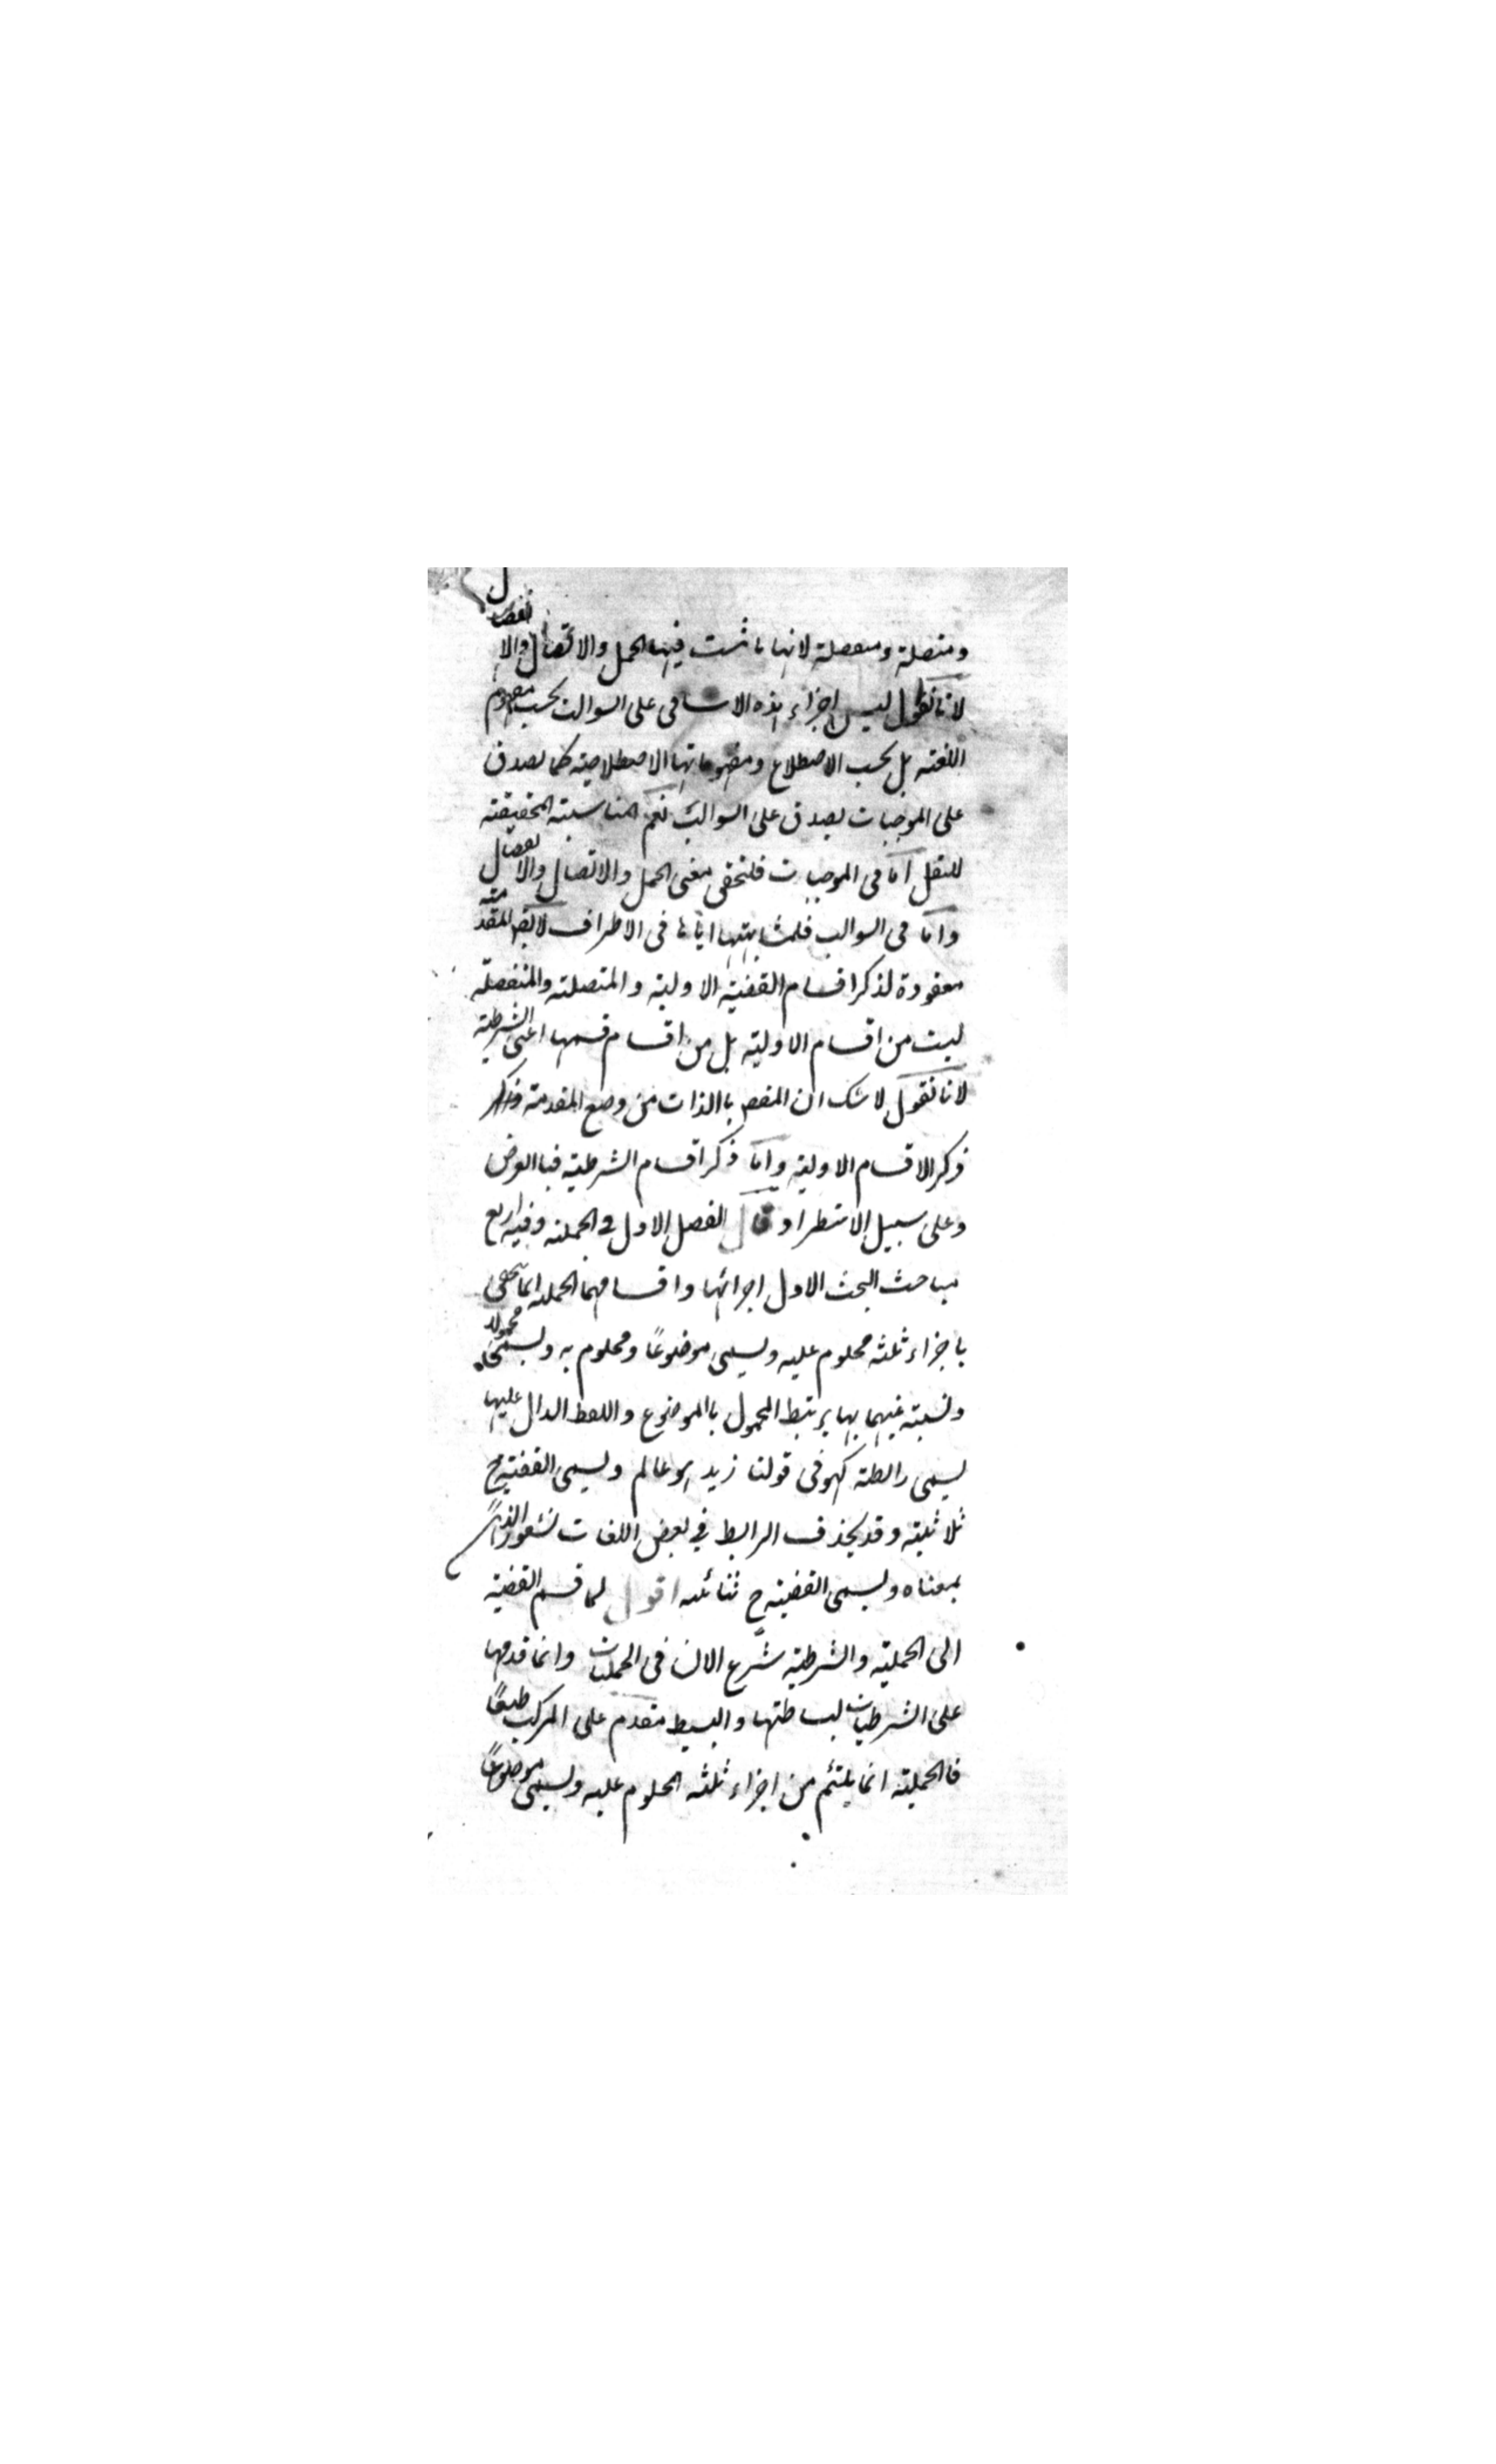 ومتصلة ومنفصلة لانها ما ثبت فيها الحمل والاتصال والانفصال
لانا نقول ليس اجزاء هذه الاسامى على السوالب بحسب مفهوم
اللغته بل بحسب الاصطلاح ومفهوماتها الاصطلاحيته كما يصدق
على الموجبات يصدق على السوالب نعم المناسبته الحقيقته
للنقل اما فى الموجبات فلتحقق معنى الحمل والاتصال والانفصال
واما فى السوالب فلمشابهتها اياها فى الاطراف لايقال المقدمته
معقودة لذكر اقسام القضيته الاوليته والمتصلته والمنفصلته
ليست من اقسام الاوليته بل من اقسام قسمها اعنى الشرطيته
لانا نقول لا شك ان المقص باالذات من وضع المقدمته
ذكر الاقسام الاوليته واما ذكر اقسام الشرطيته فباالعرض
وعلى سبيل الاستطراد قال الفصل الاول فى الحمليته وفيه اربع
مباحث البحث الاول اجزائها واقسامهما الحمليته انما تتحقق
باجزاء ثلثه محكوم عليه ويسمى موضوعًا ومحكوم به ويسمى محمولا
ونسبته بينهما بها يرتبط المحمول باالموضوع واللفظ الدال عليها
يسمى رابطته كهو فى قولنا زيد هو عالم ويسمى القضيته ح
ثلاثيته وقد يحذف الرابط فى بعض اللغات لشعور الذهن
بمعناه ويسمى القضيته ح ثنائيته اقول لما قسم القضيته
الى الحمليته والشرطيته شرع الان فى الحمليات وانما قدمها
على الشرطيات لبساطتها والبسيط مقدم على المركب طبعًا
فالحمليته انما يلتئم من اجزاء ثلثه المحكوم عليه ويسمى موضوعًا